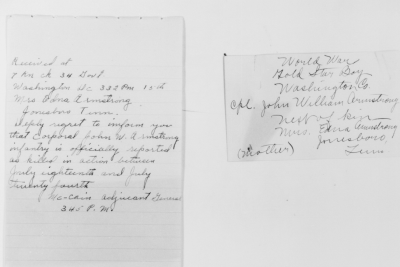 Received at
7 Rn ck 34 Govt
Washington Dc 332 Pm 15th
Mrs Edna Armstrong
Jonesboro Tenn.
deeply regret to inform you
that Corporal John W. Armstrong
infantry is officially reported
as killed in action between
July eighteenth and July
twenty fourth
Mc-cain adjutant General
345 P.M.
World War
Gold Star Boy
Washington Co
Cpl. John William Armstrong
Next of kin
Mrs. Edna Armstrong
(Mother) Jonesboro,
Tenn